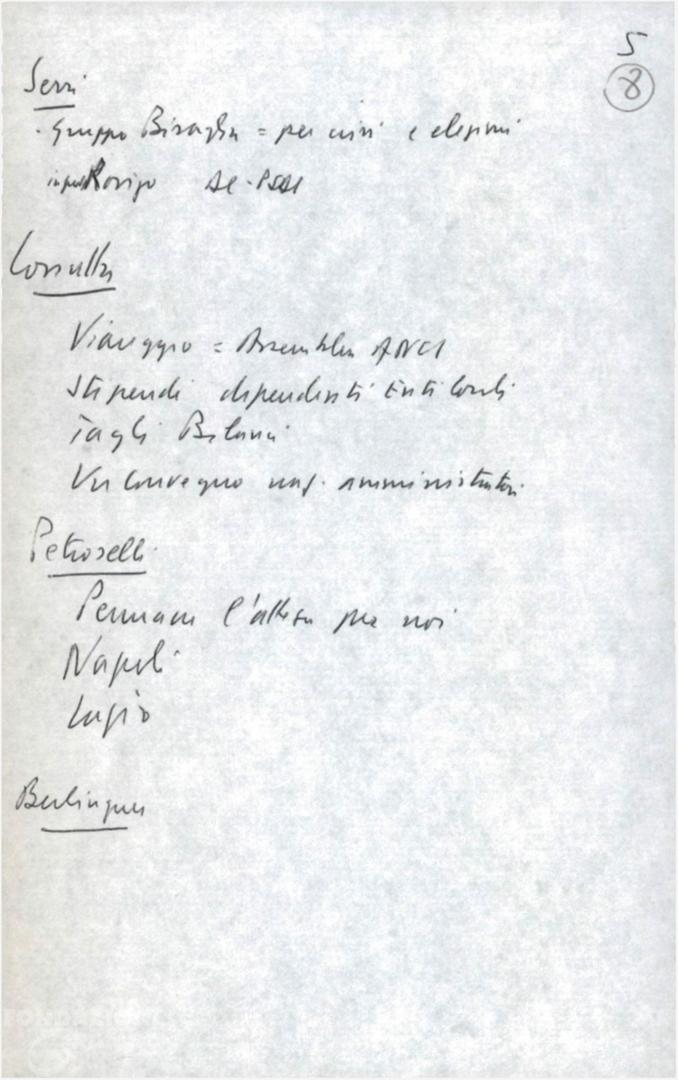 5
8
Serri
- Gruppo Bisaglia = per crisi e elezioni
Rovigo DC-PSDI
Cossutta
Viareggio = Assemblea ANCI
Stipendi dipendenti Enti locali
Tagli Bilanci
Un Convegno naz. amministratori
Petroselli
Permane l'attesa per noi
Napoli
Lazio
Berlinguer